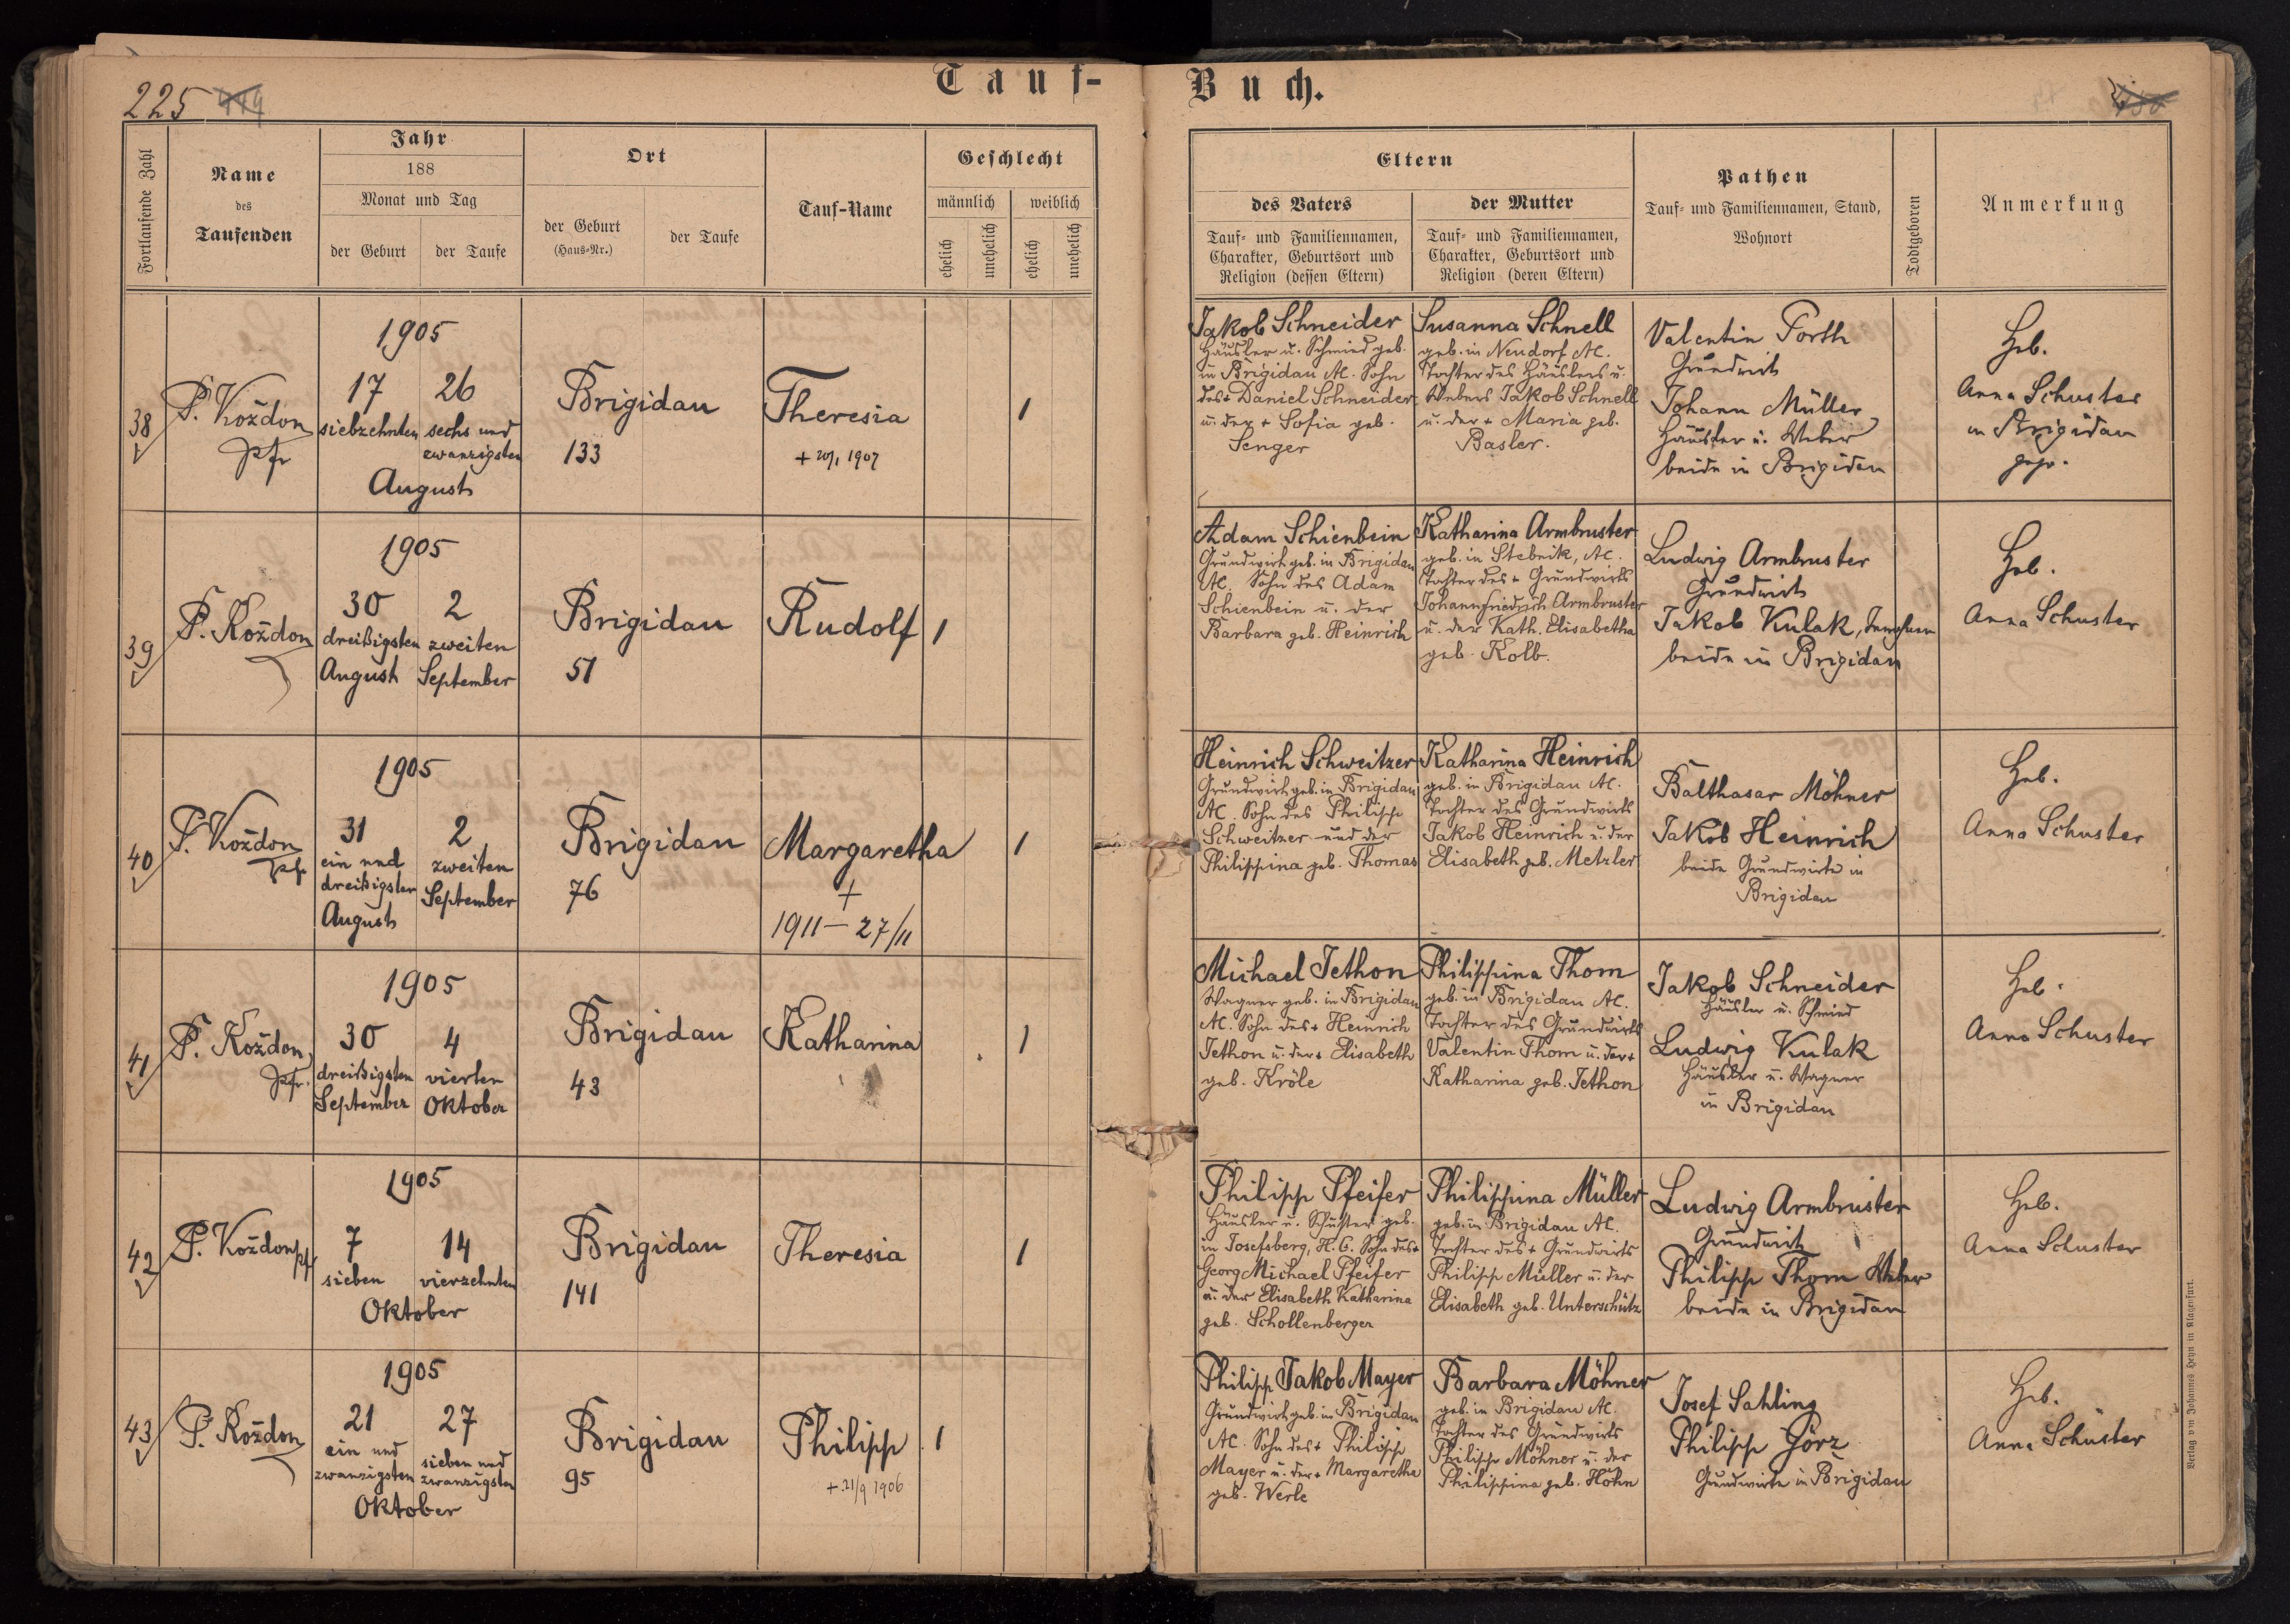 Tauf-
Buch.
225 449
450
Fortlaufende Zahl
Name
des
Taufenden
Jahr
188
Monat und Tag
der Geburt
der Taufe
Ort
der Geburt
(Haus-Nr.)
der Taufe
Tauf-Name
Geschlecht
männlich
weiblich
ehelich
unehelich
ehelich
unehelich
Eltern
des Vaters
Tauf- und Familiennamen,
Charakter, Geburtsort und
Religion (dessen Eltern)
der Mutter
Tauf- und Familiennamen,
Charakter, Geburtsort und
Religion (deren Eltern)
Pathen
Tauf- und Familiennamen, Stand,
Wohnort
Todtgeboren
Anmerkung
38
P. Koždon
Pfr
1905
17
siebzehnten
26
sechs und
zwanzigsten
August
Brigidau
133
Theresia
+ 20/1 1907
1
Jakob Schneider
Häusler u. Schmied geb.
in Brigidau AC. Sohn
des + Daniel Schneider
u. der + Sofia geb.
Senger
Susanna Schnell
geb. in Neudorf AC.
Tochter des Häuslers u.
Webers Jakob Schnell
u. der + Maria geb.
Basler.
Valentin Forth
Grundwirt
Johann Müller,
Häusler u. Weber
beide in Brigidau
Heb.
Anna Schuster
in Brigidau
gepr.
39
P. Koždon
1905
30
dreißigsten
August
2
zweiten
September
Brigidau
51
Rudolf
1
Adam Schienbein
Grundwirt geb. in Brigidau
AC. Sohn des Adam
Schienbein u. der
Barbara geb. Heinrich
Katharina Armbruster
geb. in Stebnik, AC.
Tochter des + Grundwirts
Johann Friedrich Armbruster
u. der Kath. Elisabetha
geb. Kolb.
Ludwig Armbruster
Grundwirt
Jakob Kulak,
beide in Brigidau
Heb.
Anna Schuster
40
P. Koždon
Pfr
1905
31
ein und
dreißigsten
August
2
zweiten
September
Brigidau
76
Margaretha
+
1911 – 27/11
1
Heinrich Schweitzer
Grundwirt geb. in Brigidau
AC. Sohn des Philipp
Schweitzer und der
Philippina geb. Thomas
Katharina Heinrich
geb. in Brigidau AC.
Tochter des Grundwirts
Jakob Heinrich u. der
Elisabeth geb. Metzler
Balthasar Möhner
Jakob Heinrich
beide Grundwirte in
Brigidau
Heb.
Anna Schuster
41
P. Koždon,
Pfr.
1905
30
dreißigsten
September
4
vierten
Oktober
Brigidau
43
Katharina
1
Michael Jethon
Wagner geb. in Brigidau
AC. Sohn des + Heinrich
Jethon u. der + Elisabeth
geb. Kröle
Philippina Thom
geb. in Brigidau AC.
Tochter des Grundwirts
Valentin Thom u. der +
Katharina geb. Jethon
Jakob Schneider
Häusler u. Schmied
Ludwig Kulak
Häusler u. Wagner
in Brigidau
Heb.
Anna Schuster
42
P. Koždon Pfr
1905
7
sieben
14
vierzehnten
Oktober
Brigidau
141
Theresia
1
Philipp Pfeifer
Häusler u. Schuster geb.
in Josefsberg, H. C. Sohn des +
Georg Michael Pfeifer
u. der Elisabeth Katharina
geb. Schollenberger
Philippina Müller
geb. in Brigidau AC.
Tochter des + Grundwirts
Philipp Müller u. der
Elisabeth geb. Unterschütz
Ludwig Armbruster
Grundwirt
Philipp Thom Weber
beide in Brigidau
Heb.
Anna Schuster
43
P. Koždon
1905
21
ein und
zwanzigsten
27
sieben und
zwanzigsten
Oktober
Brigidau
95
Philipp
+ 21/9 1906
1
Philipp Jakob Mayer
Grundwirt geb. in Brigidau
AC. Sohn des + Philipp
Mayer u. der + Margaretha
geb. Werle
Barbara Möhner
geb. in Brigidau AC.
Tochter des Grundwirts
Philipp Möhner u. der
Philippina geb. Höhn
Josef Sahling
Philipp Görz
Grundwirte in Brigidau
Heb.
Anna Schuster
Verlag von Johannes Heyn in Klagenfurt.